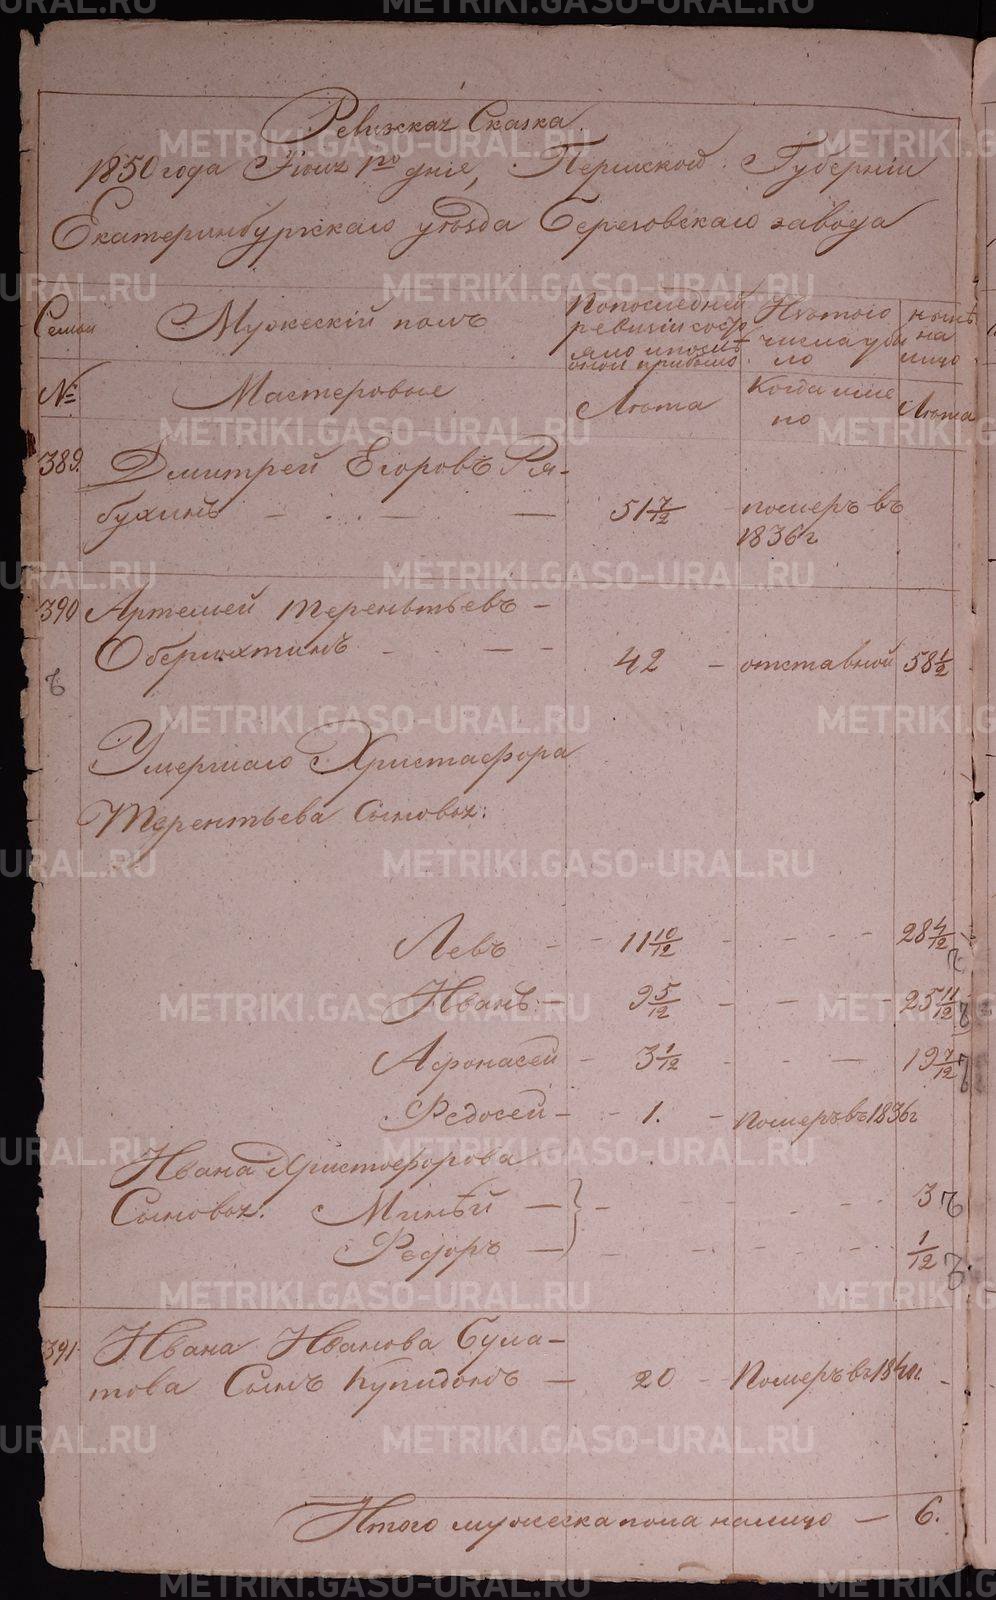 Ревижская Сказка
1850 года Июня 1го дня, Пермской Губернии
Екатеринбургскаго уѣзда Березовскаго завода
Семьи
Мужескій полъ
По последней ревизіи состояло и после оной прибыло
Изтого числа убыло
нынѣ на лицо
№
Мастеровые
Лѣта
Когда имено
Лѣта
389. Дмитрей Егоровъ Ря-
бухинъ — — — 51 7/12 - померъ въ
1836г
390 Артемей Терентьевъ -
Оберюхтинъ - - — — 42 — отставной 58 1/2
Умершаго Христафора
Терентьева Сыновья:
Левъ - - 11 10/12 - - - - 28 4/12
Иванъ - 9 5/12 - - - - 25 11/12
Афонасей - 3 1/12 - — 19 7/12
Федосей - - 1. - Померъ въ 1836г
Ивана Христофорова
Сыновья: Минѣй — } - - - - - 3
Федоръ — - - - - - 1/12
391. Ивана Иванова Була-
това Сынъ Купидонъ — 20 - Померъ въ 184 г. -
Итого мужеска пола налицо — 6.
METRIKI.GASO-URAL.RU